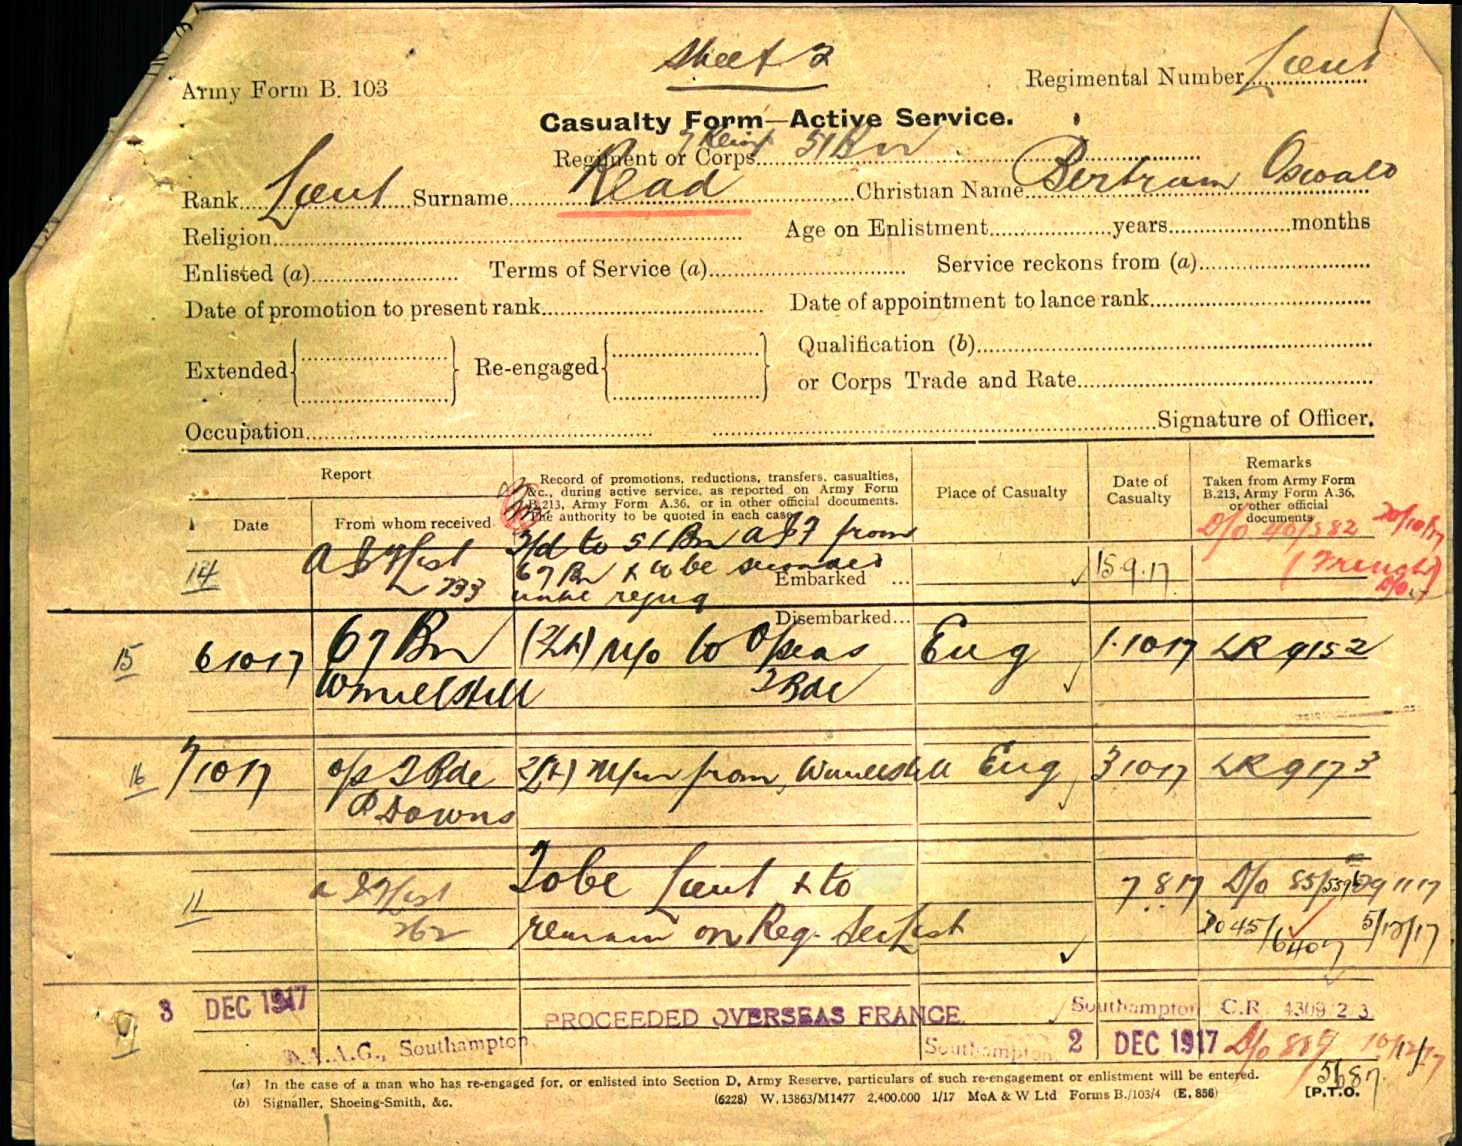 Sheet 2
Army Form B. 103
Regimental Number Lieut
Casualty Form—Active Service.
Regiment or Corps 51 Bn
Rank Lieut Surname Read Christian Name Bertram Oswald
Religion
Age on Enlistment years months
Enlisted (a) Terms of Service (a) Service reckons from (a)
Date of promotion to present rank Date of appointment to lance rank
Extended Re-engaged Qualification (b)
or Corps Trade and Rate
Occupation Signature of Officer.
Report
Date
From whom received
Record of promotions, reductions, transfers, casualties, &c., during active service, as reported on Army Form B.213, Army Form A.36, or in other official documents. The authority to be quoted in each case.
Place of Casualty
Date of Casualty
Remarks
Taken from Army Form B.213, Army Form A.36, or other official documents
D/o 40/ 382 20/10/17
14 A I F List 733 T/d to 51 Bn A I F from 67 Bn & to be seconded 15.9.17
Embarked ...
Disembarked...
15 6 10 17 67 Bn (2/Lt) M/o to O/seas T Bde Eng 1.10 17 LR 9152
16 7 10 17 o/s T Bde 2/Lt) M/in from Eng 3 10 17 LR 9173
P Downs
11 A I F List 262 To be Lieut & to remain on Reg. Sec List 7 8 17 D/o 85/ 29 11 17
Do 45/6407 5/12/17
3 DEC 1917 PROCEEDED OVERSEAS FRANCE. Southampton C.R 4309/23
D.A.A.G., Southampton. Southampton 2 DEC 1917 D/o 88 10/12/17
5687
(a) In the case of a man who has re-engaged for, or enlisted into Section D, Army Reserve, particulars of such re-engagement or enlistment will be entered.
(b) Signaller, Shoeing-Smith, &c. (6228) W.13863/M1477 2,400,000 1/17 McA & W Ltd Forms B./103/4 (E. 856) [P.T.O.